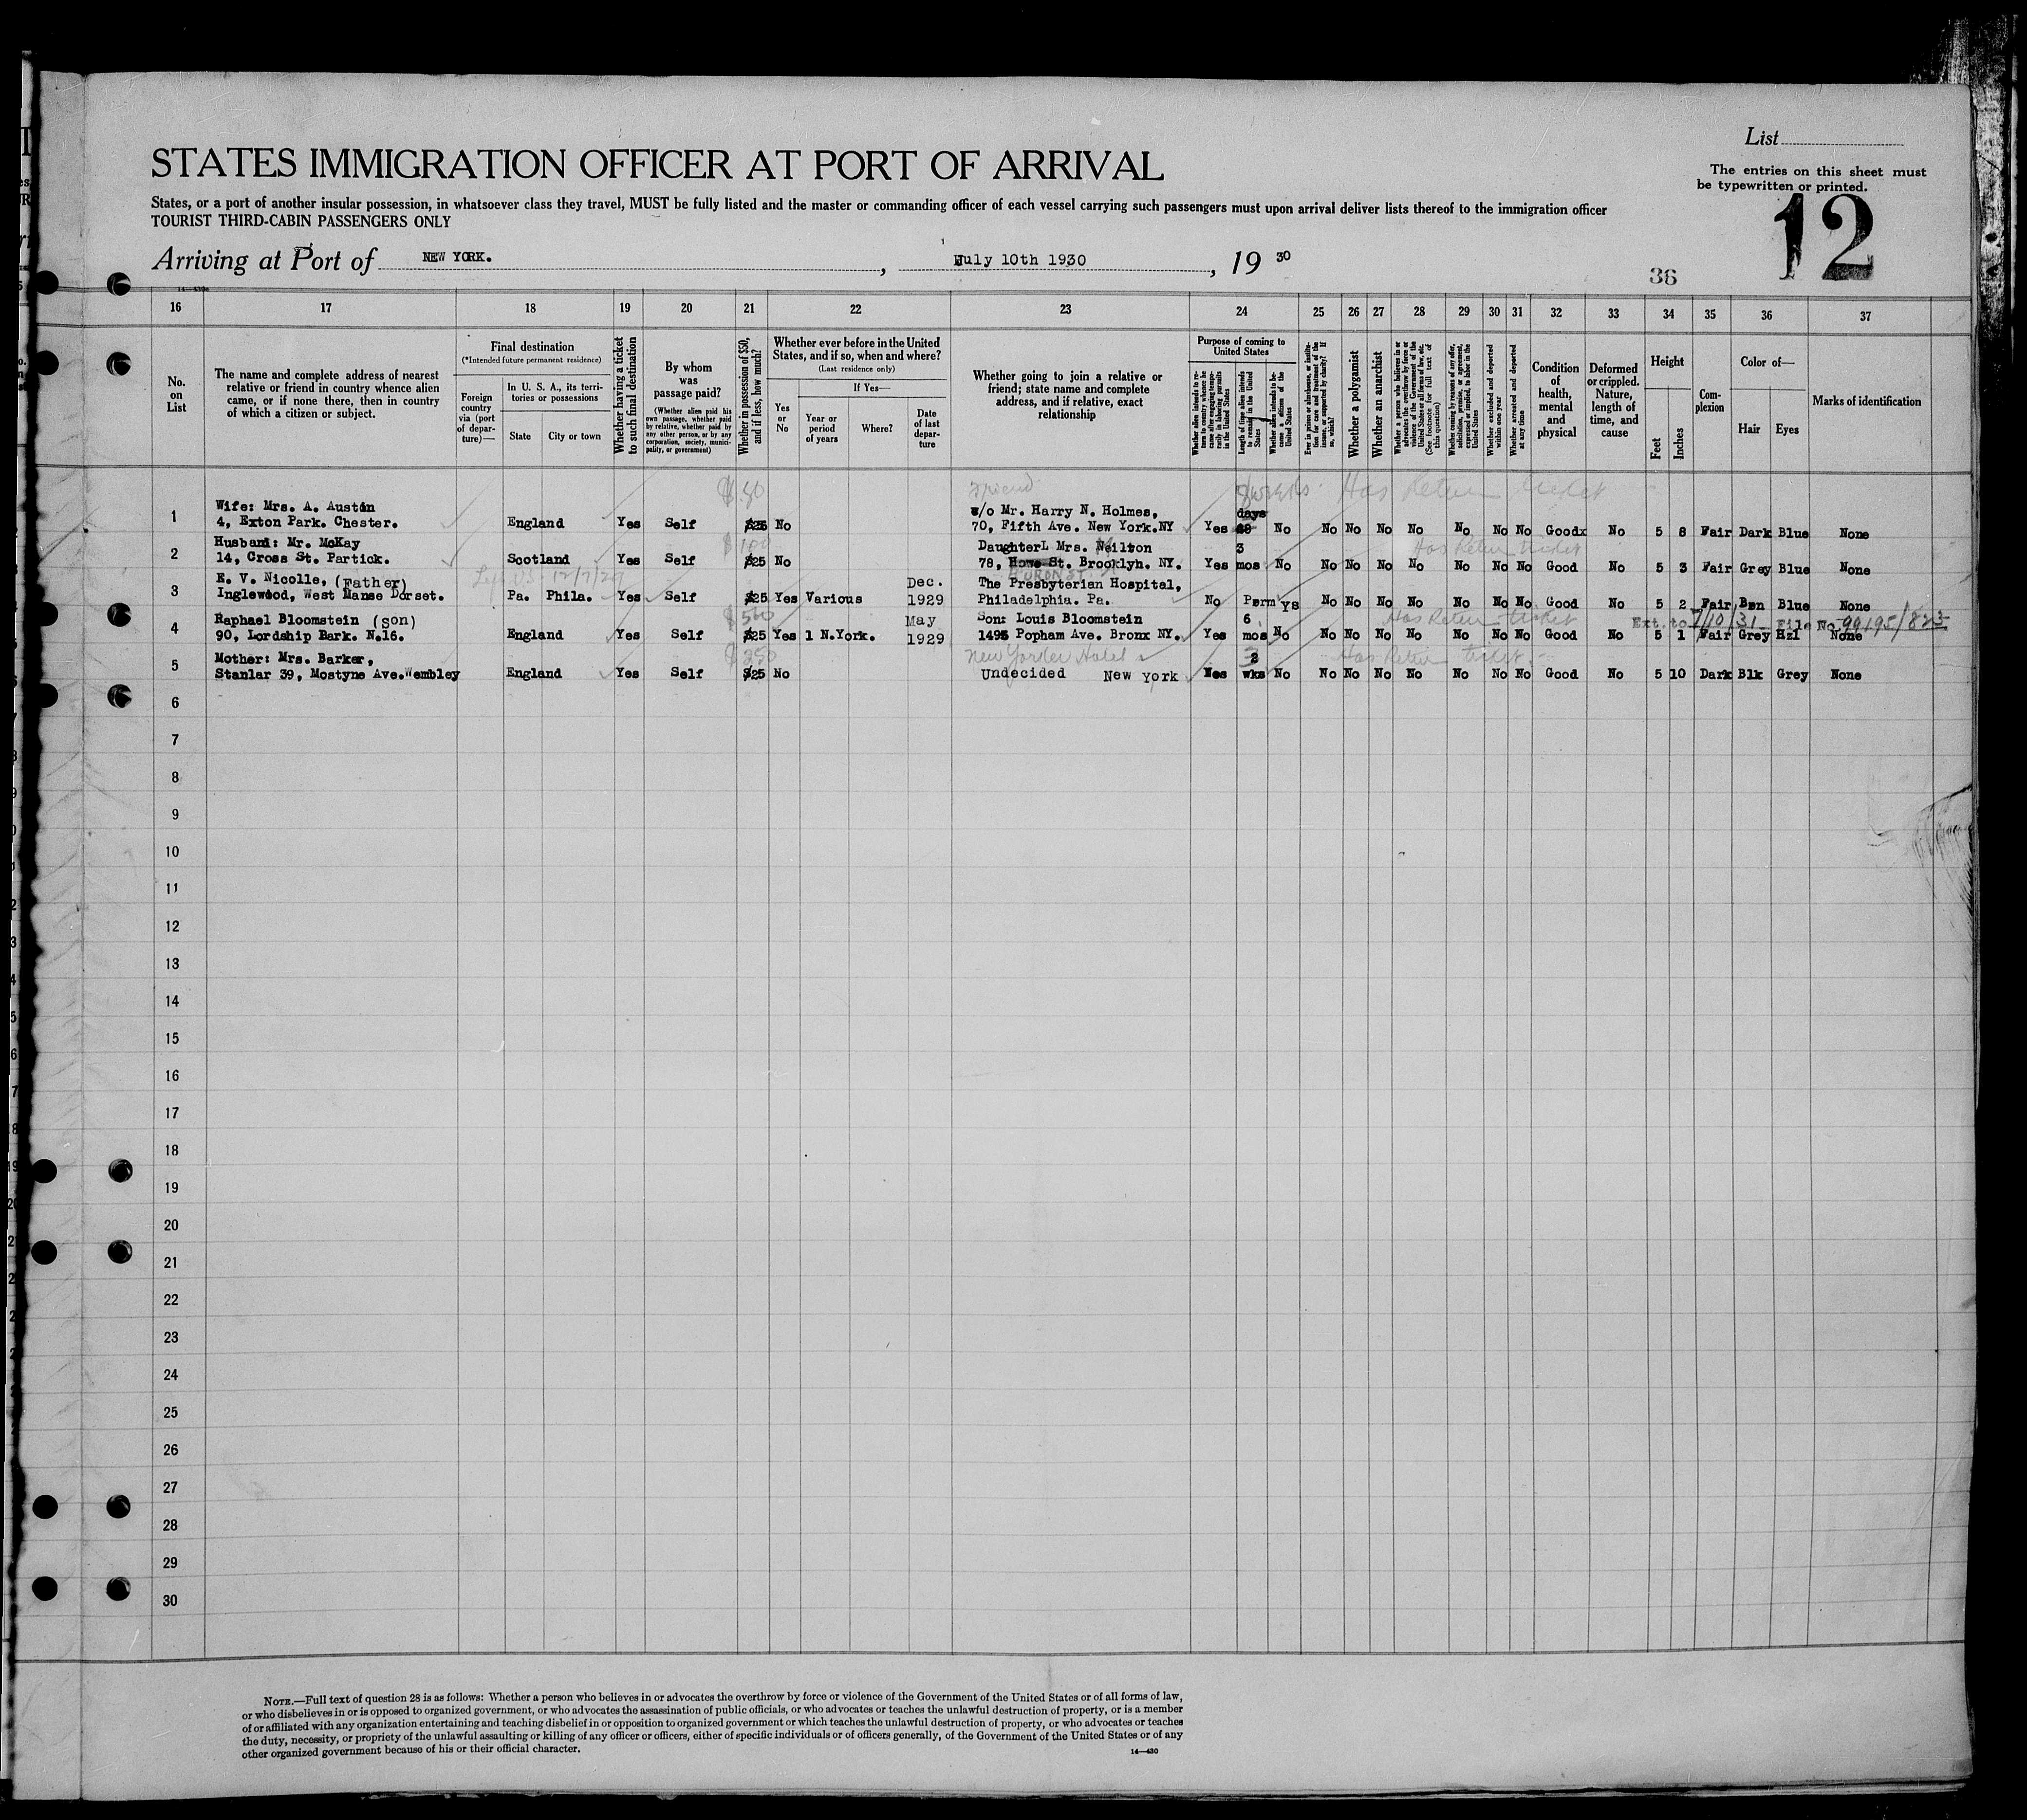 List
STATES IMMIGRATION OFFICER AT PORT OF ARRIVAL
The entries on this sheet must
be typewritten or printed.
States, or a port of another insular possession, in whatsoever class they travel, MUST be fully listed and the master or commanding officer of each vessel carrying such passengers must upon arrival deliver lists thereof to the immigration officer
TOURIST THIRD-CABIN PASSENGERS ONLY
12
Arriving at Port of NEW YORK. , July 10th 1930 , 19 30
36
16 17 18 19 20 21 22 23 24 25 26 27 28 29 30 31 32 33 34 35 36 37
No. on List
The name and complete address of nearest relative or friend in country whence alien came, or if none there, then in country of which a citizen or subject.
Final destination
(*Intended future permanent residence)
Foreign country via (port of departure)—
In U. S. A., its territories or possessions
State City or town
Whether having a ticket to such final destination
By whom was passage paid?
(Whether alien paid his own passage, whether paid by relative, whether paid by any other person, or by any corporation, society, municipality, or government)
Whether in possession of $50, and if less, how much?
Whether ever before in the United States, and if so, when and where?
(Last residence only)
Yes or No
If Yes—
Year or period of years
Where?
Date of last departure
Whether going to join a relative or friend; state name and complete address, and if relative, exact relationship
Purpose of coming to United States
Whether alien intends to return to country whence he came after engaging temporarily in laboring pursuits in the United States
Length of time alien intends to remain in the United States
Whether alien intends to become a citizen of the United States
Ever in prison or almshouse, or institution for care and treatment of the insane, or supported by charity? If so, which?
Whether a polygamist
Whether an anarchist
Whether a person who believes in or advocates the overthrow by force or violence of the Government of the United States or all forms of law, etc. (See footnote for full text of this question)
Whether coming by reason of any offer, solicitation, promise, or agreement, expressed or implied, to labor in the United States
Whether excluded and deported within one year
Whether arrested and deported at any time
Condition of health, mental and physical
Deformed or crippled. Nature, length of time, and cause
Height
Feet Inches
Complexion
Color of—
Hair Eyes
Marks of identification
$80 Friend Has Return ticket
Wife: Mrs. A. Austin w/o Mr. Harry N. Holmes, days
1 4, Exton Park. Chester. England Yes Self $25 No 70, Fifth Ave. New York.NY Yes No No No No No No No No Goodx No 5 8 Fair Dark Blue None
Husband: Mr. McKay $100 DaughterL Mrs. Neilton 3 Has Return ticket
2 14, Cross St. Partick. Scotland Yes Self $25 No 78, Howe St. Brooklyh. NY. Yes mos No No No No No No No No Good No 5 3 Fair Grey Blue None
HURON ST.
E. V. Nicolle, (Father) Left US 12/7/29 Dec. The Presbyterian Hospital,
3 Inglewood, West Manse Dorset. Pa. Phila. Yes Self $25 Yes Various 1929 Philadelphia. Pa. No Perm Ys No No No No No No No Good No 5 2 Fair Bon Blue None
Raphael Bloomstein (son) $500 May Son: Louis Bloomstein 6 Has Return ticket Ext. to 7/10/31 File No. 99195/823
4 90, Lordship Bark. N.16. England Yes Self $25 Yes 1 N.York. 1929 1495 Popham Ave. Bronx NY. Yes mos No No No No No No No No Good No 5 1 Fair Grey Hzl None
Mother: Mrs. Barker, $250 New Yorker Hotel 2 Has Return ticket.
5 Stanlar 39, Mostyne Ave.Wembley England Yes Self $25 No Undecided New York Yes wks No No No No No No No No Good No 5 10 Dark Blk Grey None
6
7
8
9
10
11
12
13
14
15
16
17
18
19
20
21
22
23
24
25
26
27
28
29
30
NOTE.—Full text of question 28 is as follows: Whether a person who believes in or advocates the overthrow by force or violence of the Government of the United States or of all forms of law,
or who disbelieves in or is opposed to organized government, or who advocates the assassination of public officials, or who advocates or teaches the unlawful destruction of property, or is a member
of or affiliated with any organization entertaining and teaching disbelief in or opposition to organized government or which teaches the unlawful destruction of property, or who advocates or teaches
the duty, necessity, or propriety of the unlawful assaulting or killing of any officer or officers, either of specific individuals or of officers generally, of the Government of the United States or of any
other organized government because of his or their official character.
14—430